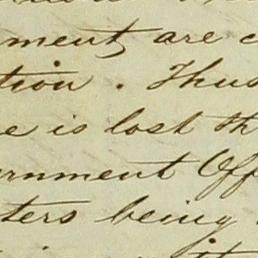 ment are c
tion. Thus
e is lost th
ernment Off
ters being